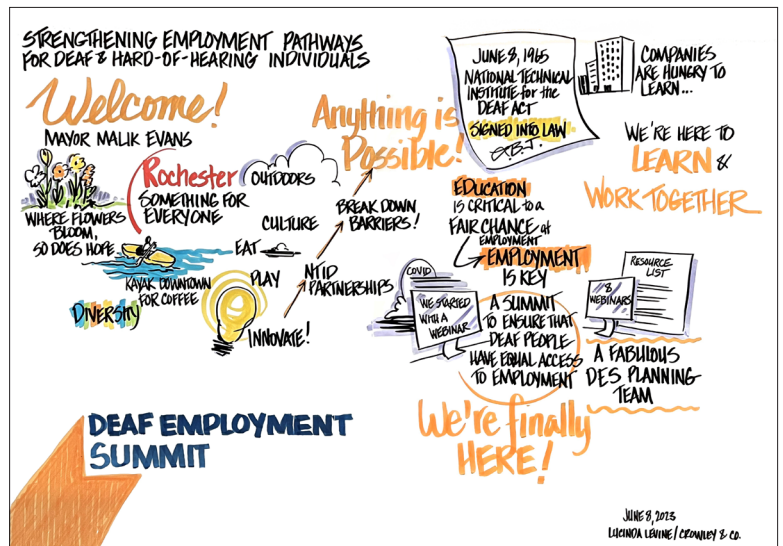 STRENGTHENING EMPLOYMENT PATHWAYS
FOR DEAF & HARD-OF-HEARING INDIVIDUALS
Welcome!
MAYOR MALIK EVANS
Rochester
SOMETHING FOR
EVERYONE
OUTDOORS
WHERE FLOWERS
BLOOM,
SO DOES HOPE
CULTURE
EAT
KAYAK DOWNTOWN
FOR COFFEE
PLAY
DIVERSITY
INNOVATE!
NTID
PARTNERSHIPS
BREAK DOWN
BARRIERS!
Anything is
Possible!
JUNE 8, 1965
NATIONAL TECHNICAL
INSTITUTE for the
DEAF ACT
SIGNED INTO LAW
L.B.J.
COMPANIES
ARE HUNGRY TO
LEARN...
WE'RE HERE TO
LEARN &
WORK TOGETHER
EDUCATION
IS CRITICAL to a
FAIR CHANCE at
EMPLOYMENT
EMPLOYMENT
IS KEY
COVID
WE STARTED
WITH A
WEBINAR
A SUMMIT
TO ENSURE THAT
DEAF PEOPLE
HAVE EQUAL ACCESS
TO EMPLOYMENT
8
WEBINARS
RESOURCE
LIST
A FABULOUS
DES PLANNING
TEAM
We're finally
HERE!
DEAF EMPLOYMENT
SUMMIT
JUNE 8, 2023
LUCINDA LEVINE / CROWLEY & CO.